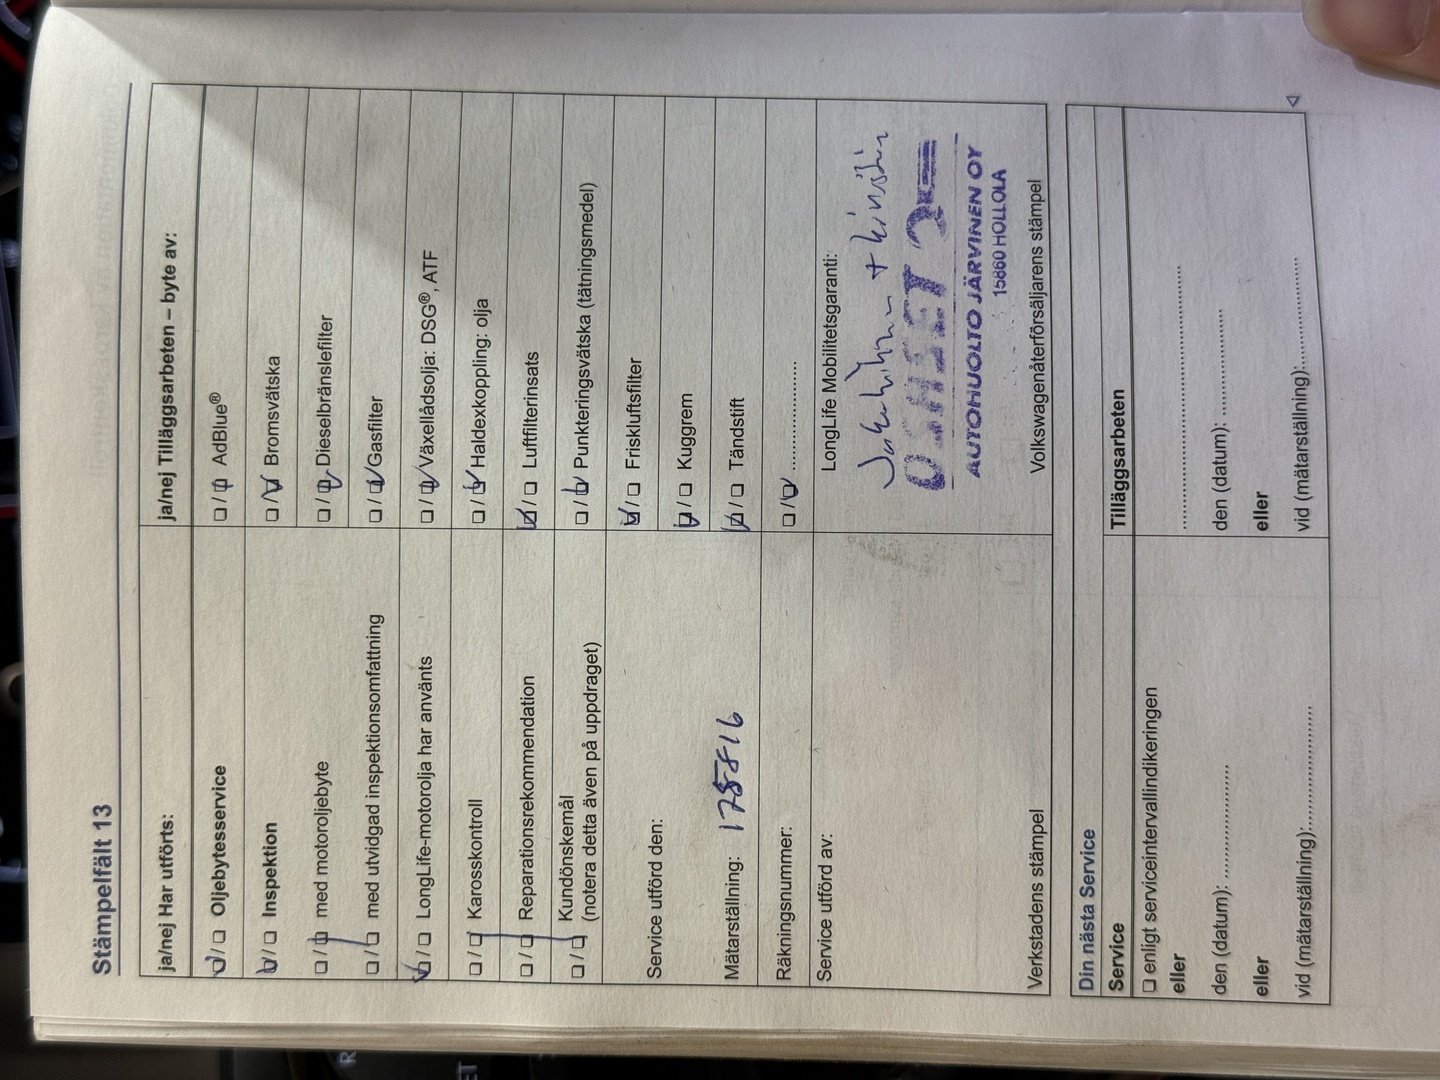 Stämpelfält 13
ja/nej Har utförts:
□/□ Oljebytesservice
□/□ Inspektion
□/□ med motoroljebyte
□/□ med utvidgad inspektionsomfattning
□/□ LongLife-motorolja har använts
□/□ Karosskontroll
□/□ Reparationsrekommendation
□/□ Kundönskemål
(notera detta även på uppdraget)
Service utförd den:
Mätarställning: 175816
Räkningsnummer:
Service utförd av:
Verkstadens stämpel
ja/nej Tilläggsarbeten – byte av:
□/□ AdBlue®
□/□ Bromsvätska
□/□ Dieselbränslefilter
□/□ Gasfilter
□/□ Växellådsolja: DSG®, ATF
□/□ Haldexkoppling: olja
□/□ Luftfilterinsats
□/□ Punkteringsvätska (tätningsmedel)
□/□ Friskluftsfilter
□/□ Kuggrem
□/□ Tändstift
□/□ ........................
LongLife Mobilitetsgaranti:
AUTOHUOLTO JÄRVINEN OY
15860 HOLLOLA
Volkswagenåterförsäljarens stämpel
Din nästa Service
Service
□ enligt serviceintervallindikeringen
eller
den (datum): ........................
eller
vid (mätarställning):........................
Tilläggsarbeten
................................................
den (datum): ........................
eller
vid (mätarställning):........................